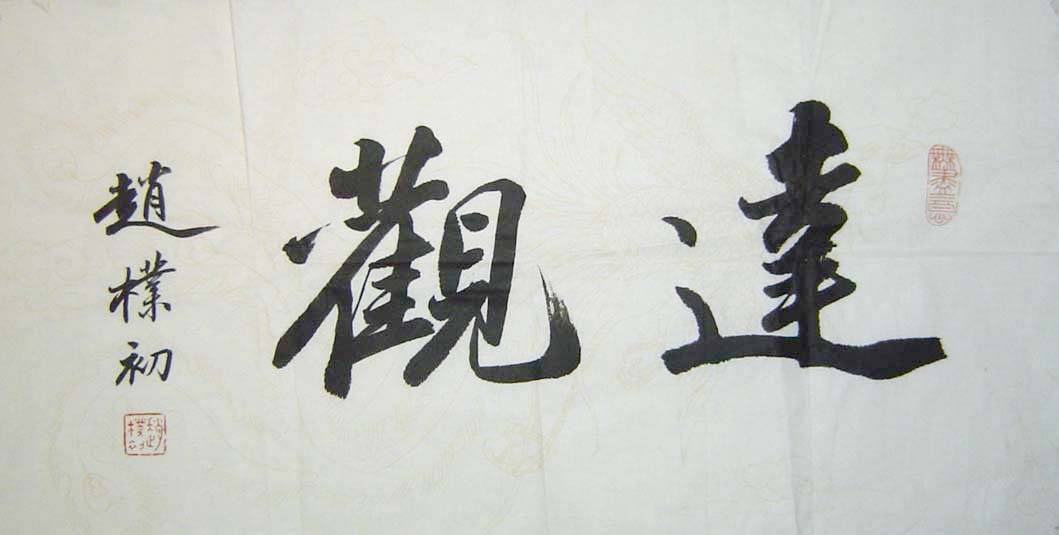 達觀
趙樸初